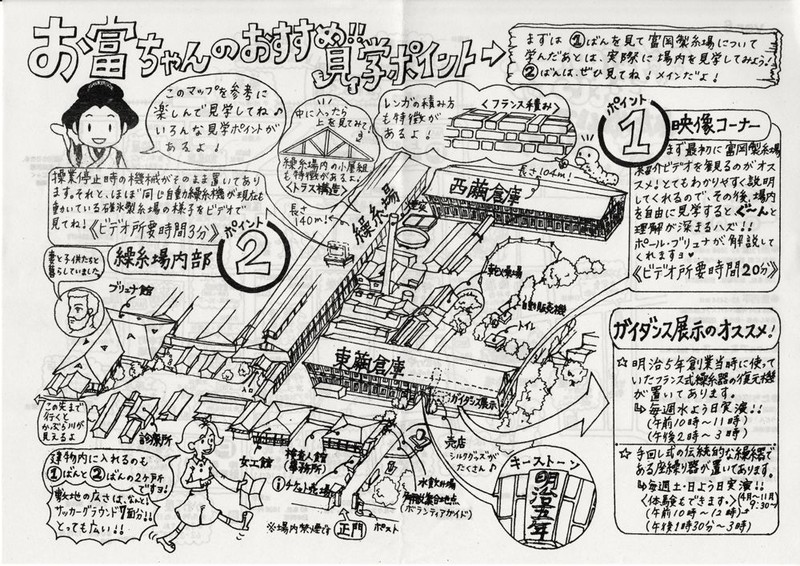 お富ちゃんのおすすめ!!見学ポイント
まずは①ばんを見て富岡製糸場について
学んだあとは、実際に場内を見学してみよう!
②ばんは、ぜひ見てね!メインだよ!
このマップを参考に
楽しんで見学してね♪
いろんな見学ポイントが
あるよ!
中に入ったら
上を見てみて!
繰糸場内の小屋組
も特徴があるよ!
〈トラス構造〉
レンガの積み方
も特徴が
あるよ!
〈フランス積み〉
ポイント
1
映像コーナー
まず最初に富岡製糸場
紹介ビデオを観るのがオス
スメ!とてもわかりやすく説明
してくれるので、その後、場内
を自由に見学すると、ぐーんと
理解が深まるハズ!!
ポール・ブリュナが解説して
くれますョ♥
《ビデオ所要時間20分》
操業停止時の機械がそのまま置いてあり
ます。それと、ほぼ同じ自動繰糸機が現在も
動いている碓氷製糸場の様子をビデオで
見てね!《ビデオ所要時間3分》
ポイント
2
繰糸場内部
長さ
140m!
繰糸場
長さ104m!
西繭倉庫
乾燥場
自動販売機
トイレ
妻と子供たちと
暮らしていました
ブリュナ館
東繭倉庫
ガイダンス展示
売店
シルクグッズが
たくさん♪
この先まで
行くと
かぶら川が
見えるよ
診療所
女工館
検査人館
(事務所)
チケット売場
水飲み場
解説集合地点
(ボランティアガイド)
※場内禁煙です
正門
ポスト
キーストーン
明治五年
建物内に入れるのも
①ばんと②ばんの2ヶ所
です!
敷地の広さは、なんと!
サッカーグラウンド7面分!!
とっても広い!!
ガイダンス展示のオススメ!
☆明治5年創業当時に使って
いたフランス式繰糸器の復元機
が置いてあります。
⇨毎週水よう日実演!!
(午前10時〜11時)
(午後2時〜3時)
☆手回し式の伝統的な繰糸器で
ある座繰り器が置いてあります。
⇨毎週土・日よう日実演!!
〈体験もできます。〉(4月〜11月)
9:30〜
(午前10時〜12時)
(午後1時30分〜3時)